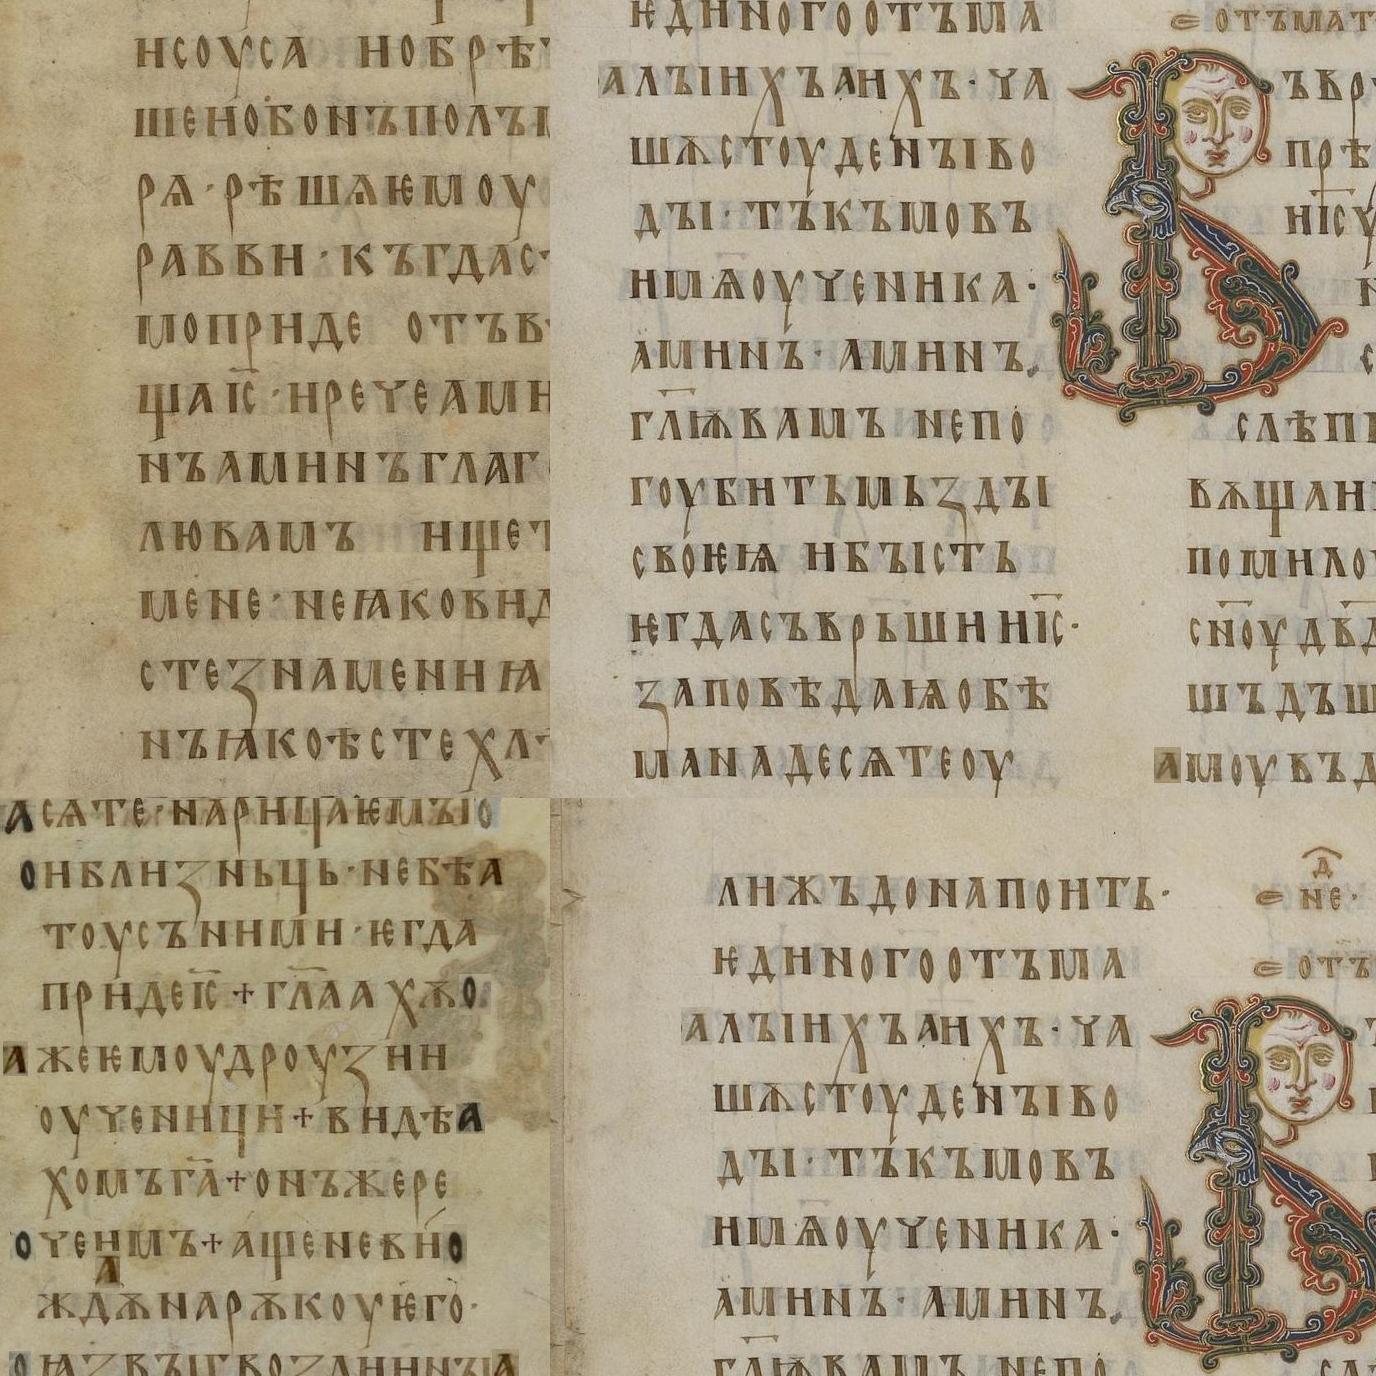 исоуса нобрѣ
шенобонъполъі
рѧ·рѣшѧѥмоу
равви·къгдас
моприде отъв
щаіс·иречеами
нъаминъглаг
любамъ ище
мене·неꙗкови
стезнамениꙗ
нъꙗкоѣстехл
ѥдиногоотъма
алъіихъанихъ·ча
шѫстоуденъіво
дъі·тъкъмовъ
имѧоученика·
аминъ·аминъ
гл҃ѭвамъ непо
гоубитьмьздъі
своѥѩ ибъість
ѥгдасъврьшииі҃с·
заповѣдаꙗобѣ
манадесѧтеоу
отъмат
ъвр
прѣ
ні҃су
слѣп
вѫщаи
помило
сн҃оудв҃д
шъдъш
амоувъд
асѧте·нарицаѥмъіо
онблизньць·небѣа
тоусъними·ѥгда
придеіс҃+гл҃аахѫо
ажеѥмоудроузии
оученици+видѣа
хомъга҃+онъжере
очеимъ+ащеневио
ждѫнарѫкоуѥго·
лижъдонапонть·
не·
ѥдиногоотъма
отъ
алъіихъанихъ·ча
шѫстоуденъіво
дъі·тъкъмовъ
имѧоученика·
аминъ·аминъ
гл҃ѭвамъ непо